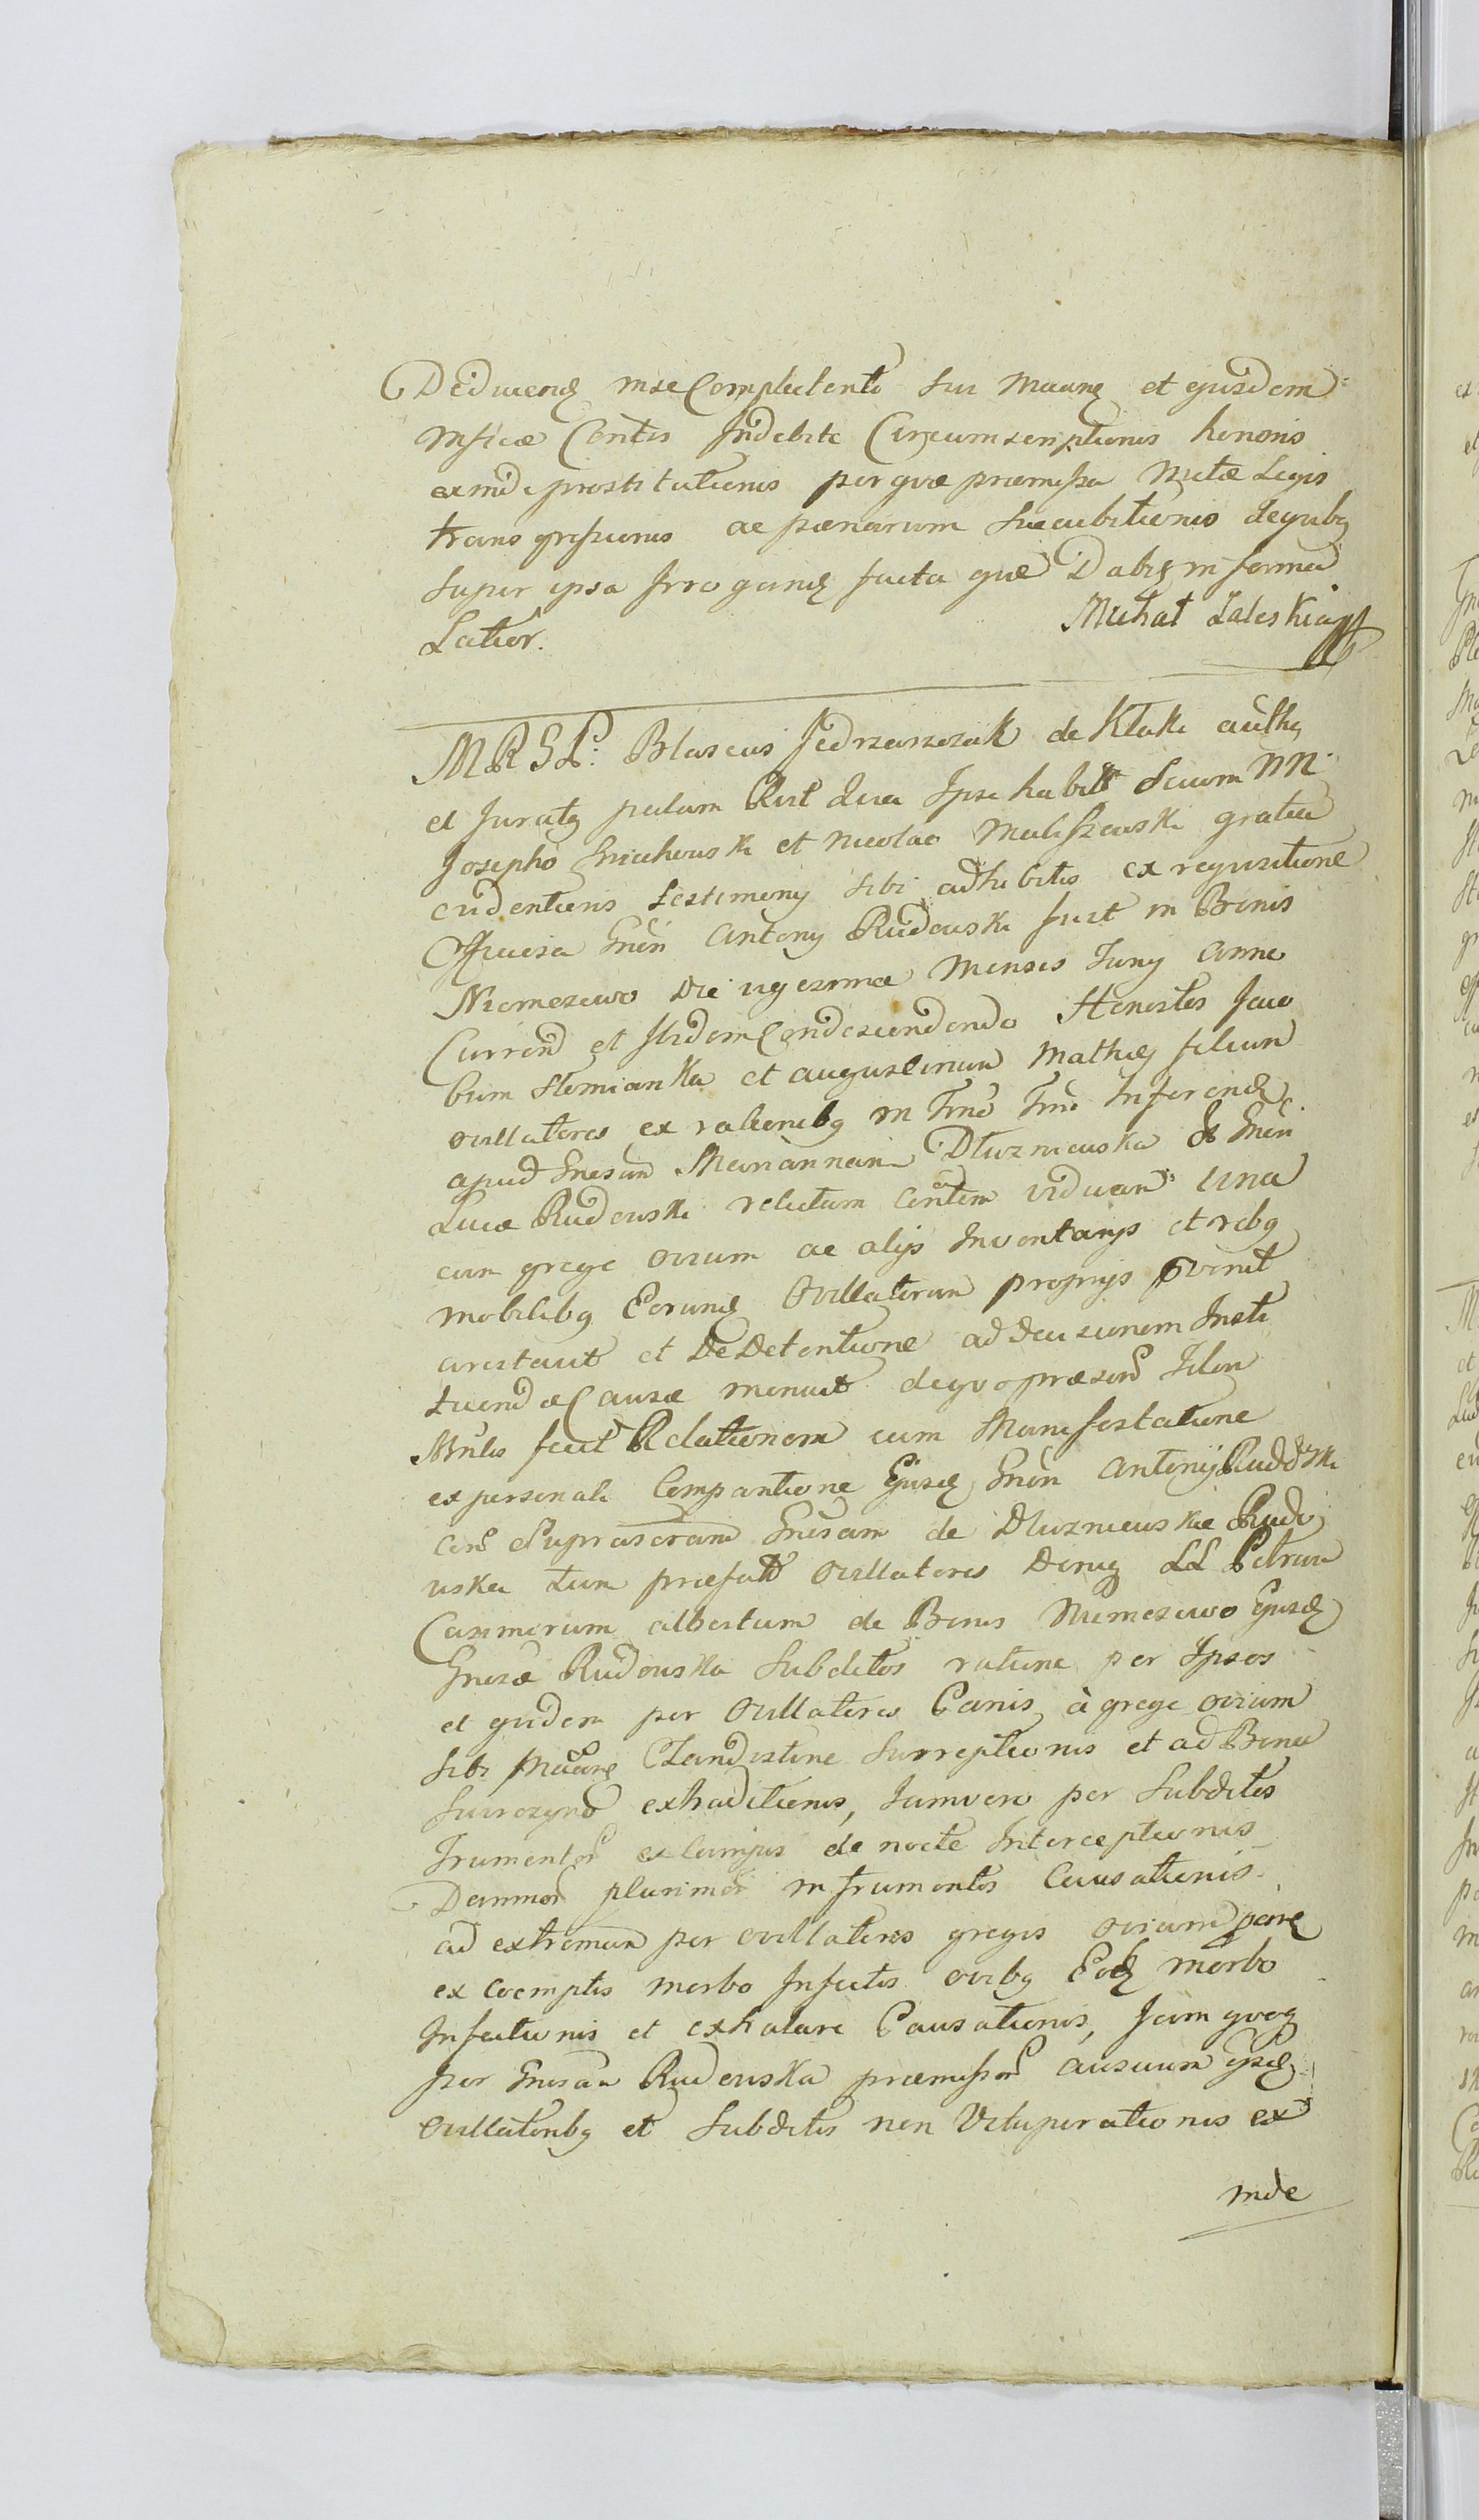 Deducend in se Complectenti sui Maane et ejusdem
insicæ Contis Indebite Circumscriptionis honoris
exinde prostitutionis per quæ præmissa Mutæ Legis
transgressionis ac pænarum Succubitionis de quibq
super ipsa Irrogand facta quæ Dabit in forma
Latior.
Michał Zaleski
MRSP: Blaseus Jedrzarczak de Kłaki auth
et Juratq palam Rlt Qua Ipse habitt Secum NN
Josepho Sniechowski et Nicolao Maliszewski gratia
evidentioris Testimony sibi adhibitis ex requisitione
Officiosa Gnēri Antony Rudowski fuit in Bonis
Niemczewo Die vigesima Mensis Juny Anno
Curren et Ibidem Condescendendo Honestos Jaco
bum Słomianka et Augustinum Mathiæ filium
ovillatores ex rationibq in Tmō Tmō Inferend
apud Gnēsam Mariannam Dłuzniewska & Gnēri
Lucæ Rudowski relictam Contem viduam una
cum grege ovium ac alijs Inventarijs et rebq
mobilibq Eorund Ovillatorum proprijs
arestavit et De Detentione ad decisionem Insti
tuendæ Causæ monuit de quo præsen Idem
Mnlis fecit Relationem cum Manifestatione
ex personali Comparitione Ejusd Gnēri Antonij Rudowski
con Suprascram Gnēsam de Dłuzniewskie Rudo
wska tum præfatt Ovillatores Deniq LL Petrum
Casimirum Albertum de Bonis Niemczewo Ejusd
Gnēsæ Rudowska Subditos ratione per Ipsos
et quidem per Ovillatores Canis à grege ovium
sibi Maane Clandestine Surreptionis et ad Bona
extraditionis, Jamvero per Subditos
Frumentor ex Campis de nocte Interceptionis
Damnor plurimor in frumentis Causationis
ad extremum per ovillatores gregis ovium
ex coemptis morbo Infectis ovibq Eod morbo
Infectionis et Causationis, Jam quoq
per Gnēsam Rudowska præmissor ausuum
Ovillatoribq et Subditis non Vituperationis ex
inde